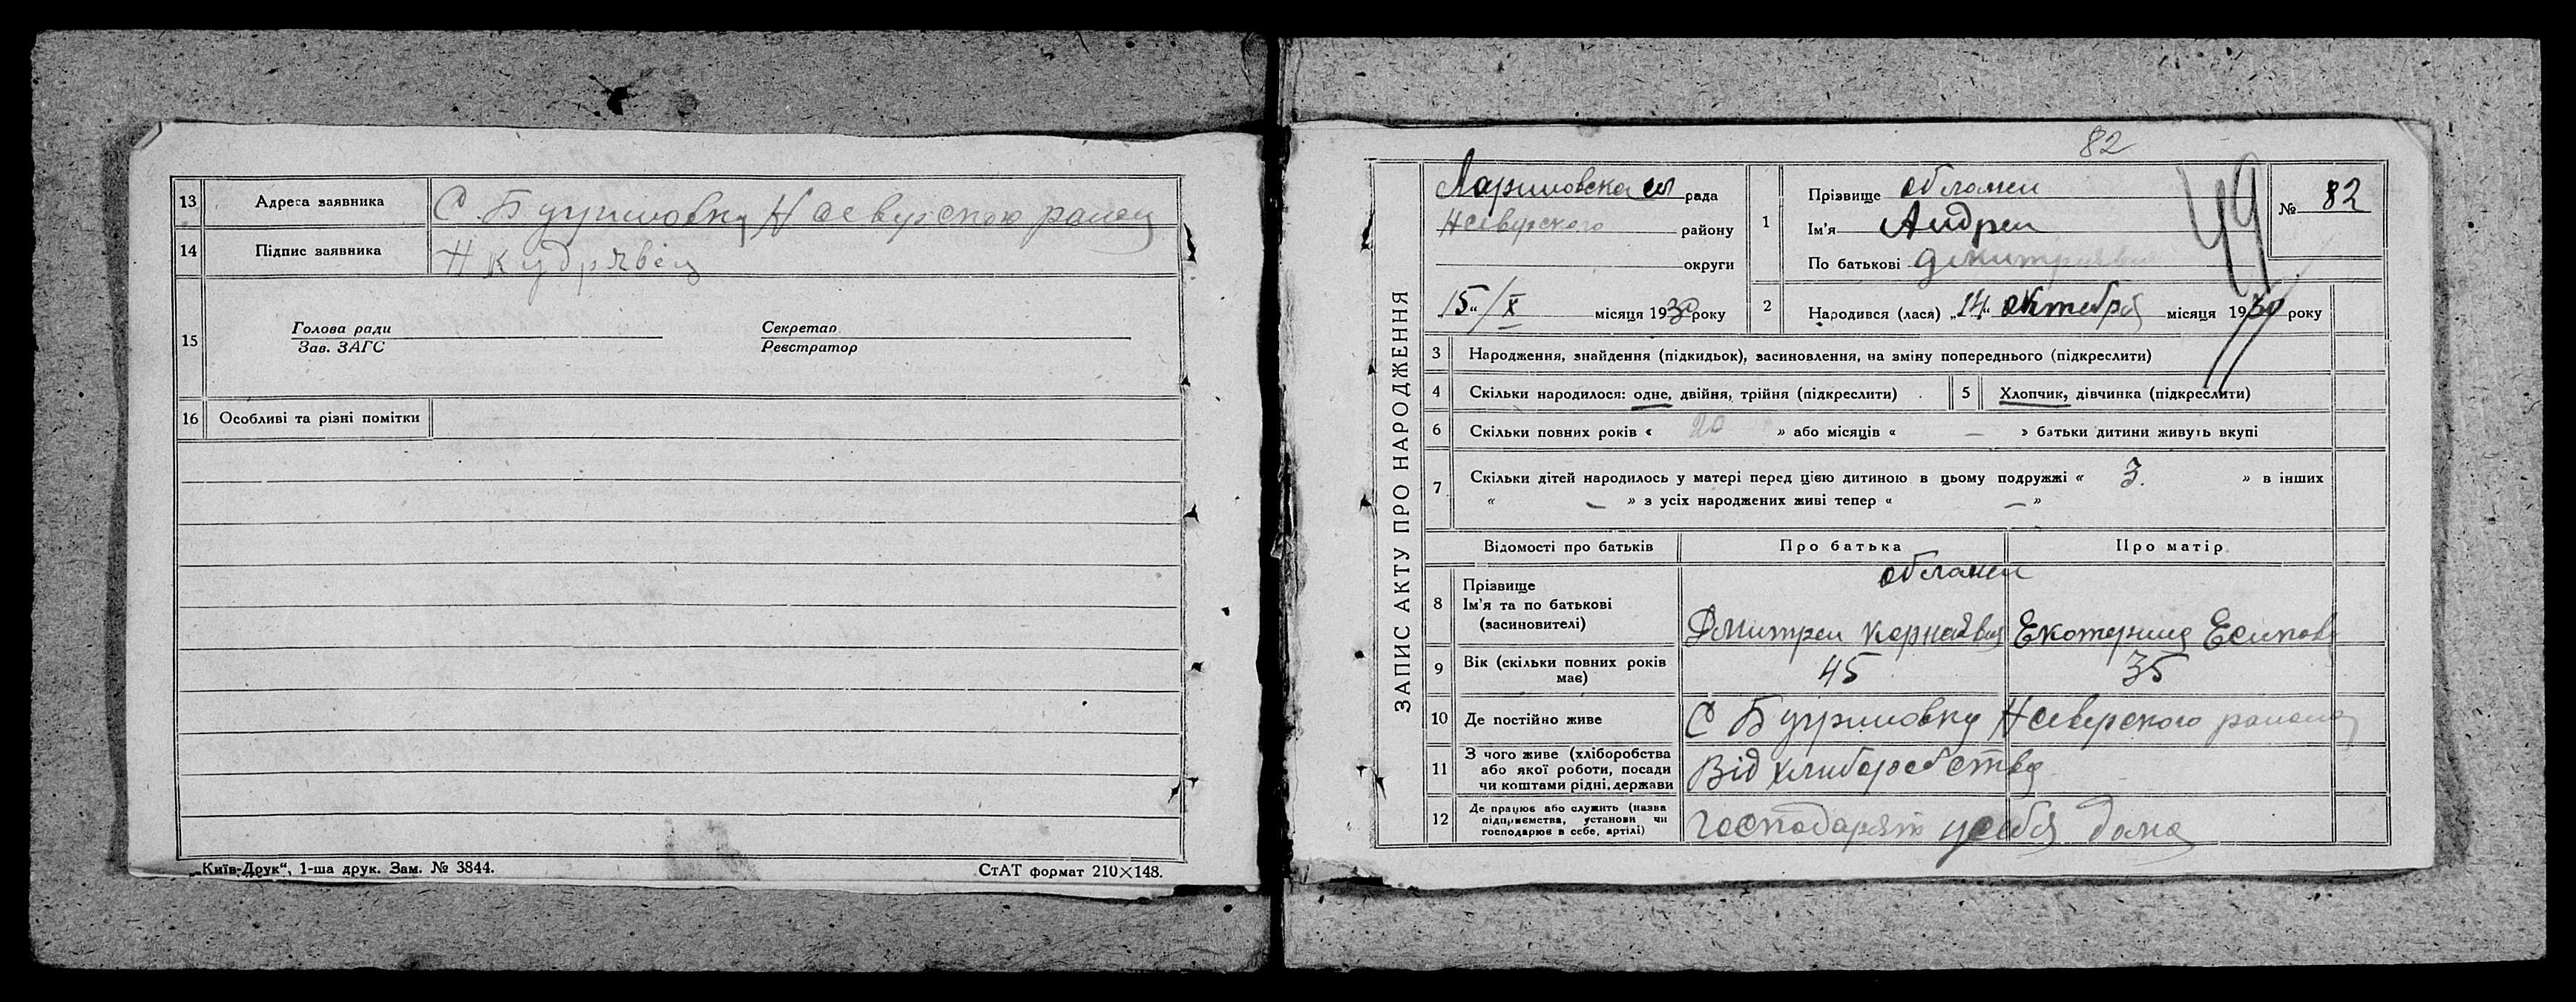 13 Адреса заявника С.
14 Підпис заявника Н Кудрявец
15 Голова ради Секретар
Зав. ЗАГС Реєстратор
16 Особливі та різні помітки
„Київ-Друк“, 1-ша друк. Зам. № 3844. СтАТ формат 210×148.
82
ЗАПИС АКТУ ПРО НАРОДЖЕННЯ
рада
району
округи
15“/X місяця 1930 року
1 Прізвище
Ім'я Андреи
По батькові
49
№ 82
2 Народився (лася) „14“ октебря місяця 1930 року
3 Народження, знайдення (підкидьок), засиновлення, на зміну попереднього (підкреслити)
4 Скільки народилося: одне, двійня, трійня (підкреслити) 5 Хлопчик, дівчинка (підкреслити)
6 Скільки повних років « 20 » або місяців « — » батьки дитини живуть вкупі
7 Скільки дітей народилось у матері перед цією дитиною в цьому подружжі « 3. » в інших
« — » з усіх народжених живі тепер « — »
Відомості про батьків Про батька Про матір
8 Прізвище
Ім'я та по батькові
(засиновителі) Дмитреи Екотерина
9 Вік (скільки повних років
має) 45 35
10 Де постійно живе С
11 З чого живе (хліборобства
або якої роботи, посади
чи коштами рідні, держави Від хлиборобства
12 Де працює або служить (назва
підприємства, установи чи
господарює в себе, артілі) Господарят усебя дома